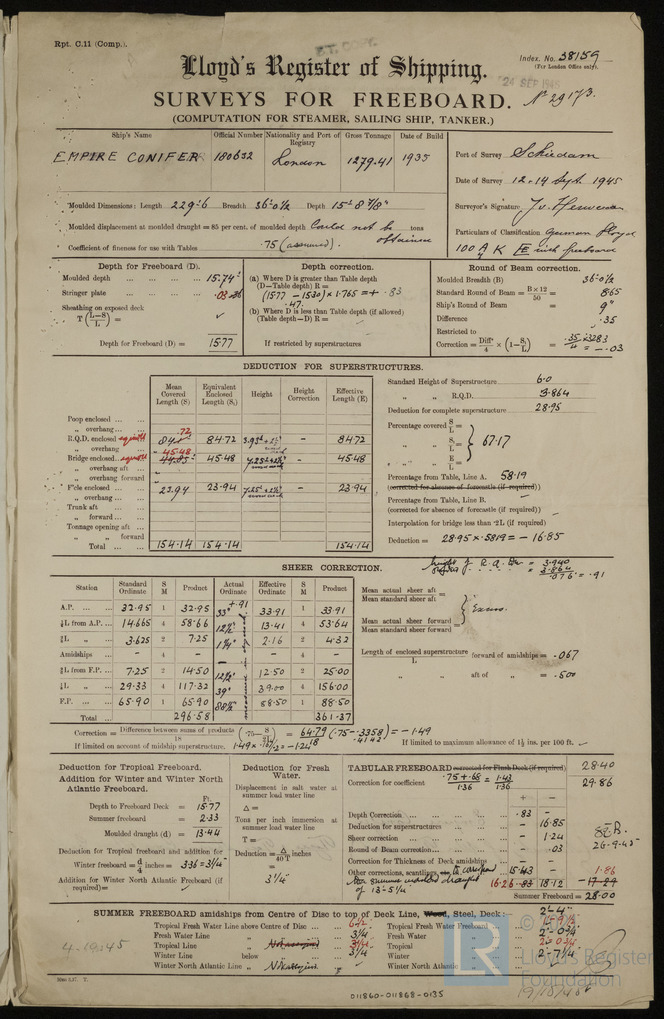 Rpt. C.11 (Comp.).
Index. No. 38159
(For London Office only).
Lloyd's Register of Shipping.
24 SEP 1945
SURVEYS FOR FREEBOARD. No 29173.
(COMPUTATION FOR STEAMER, SAILING SHIP, TANKER.)
Ship's Name Official Number Nationality and Port of Registry Gross Tonnage Date of Build
EMPIRE CONIFER 180632 London 1279.41 1935
Port of Survey Schiedam
Date of Survey 12.14 Sept. 1945
Surveyor's Signature
Particulars of Classification German Lloyd
100 A K E with freeboard
Moulded Dimensions: Length 229'-6 Breadth 36'-0½ Depth 15'-8⅞"
Moulded displacement at moulded draught = 85 per cent. of moulded depth Could not be obtained tons
Coefficient of fineness for use with Tables .75 (assumed).
Depth for Freeboard (D).
Moulded depth ... 15.74
Stringer plate ... .03
Sheathing on exposed deck
T (L-S/L) =
Depth for Freeboard (D) = 15.77
Depth correction.
(a) Where D is greater than Table depth
(D—Table depth) R =
(1577 - 1530) × 1.765 = + .83
.47
(b) Where D is less than Table depth (if allowed)
(Table depth—D) R =
If restricted by superstructures
Round of Beam correction.
Moulded Breadth (B) 36'-0½
Standard Round of Beam = B × 12/50 = 8.65
Ship's Round of Beam = 9"
Difference .35
Restricted to
Correction = Diff/4 × (1 - S₁/L) = .35/4 × .3283 = -.03
DEDUCTION FOR SUPERSTRUCTURES.
Mean Covered Length (S) Equivalent Enclosed Length (S₁) Height Height Correction Effective Length (E)
Poop enclosed ...
„ overhang ...
R.Q.D. enclosed 84.72 84.72 - 84.72
„ overhang
Bridge enclosed 45.48 45.48 - 45.48
„ overhang aft ...
„ overhang forward
F'cle enclosed ... 23.94 23.94 - 23.94
„ overhang ...
Trunk aft ...
„ forward ...
Tonnage opening aft ...
„ „ forward
Total ... 154.14 154.14 154.14
Standard Height of Superstructure 6.0
„ „ R.Q.D. 3.864
Deduction for complete superstructure 28.95
Percentage covered S/L =
„ „ S₁/L = 67.17
„ „ E/L =
Percentage from Table, Line A. 58.19
(corrected for absence of forecastle (if required))
Percentage from Table, Line B.
(corrected for absence of forecastle (if required))
Interpolation for bridge less than .2L (if required)
Deduction = 28.95 × .5819 = - 16.85
SHEER CORRECTION.
Station Standard Ordinate S M Product Actual Ordinate Effective Ordinate S M Product
A.P. ... 32.95 1 32.95 33" +.91 33.91 1 33.91
⅙L from A.P. ... 14.665 4 58.66 13.41 4 53.64
⅓L „ 3.625 2 7.25 2.16 2 4.32
Amidships ... - 4 - - 4 -
⅓L from F.P. ... 7.25 2 14.50 12½" 12.50 2 25.00
⅙L „ ... 29.33 4 117.32 39" 39.00 4 156.00
F.P. ... 65.90 1 65.90 88½" 88.50 1 88.50
Total ... 296.58 361.37
3.940
3.864
.076 = .91
Mean actual sheer aft
Mean standard sheer aft =
Mean actual sheer forward
Mean standard sheer forward =
Excess.
Length of enclosed superstructure forward of amidships = .067
L
„ „ aft of „ = .500
Correction = Difference between sums of products/18 (.75 - S/2L) = 64.79/18 (.75 - .3358) = - 1.49
.4142
If limited on account of midship superstructure.
If limited to maximum allowance of 1½ ins. per 100 ft.
Deduction for Tropical Freeboard.
Addition for Winter and Winter North Atlantic Freeboard.
Ft.
Depth to Freeboard Deck = 15.77
Summer freeboard = 2.33
Moulded draught (d) = 13.44
Deduction for Tropical freeboard and addition for
Winter freeboard = d/4 inches = 3.36 = 3¼"
Addition for Winter North Atlantic Freeboard (if required) =
Deduction for Fresh Water.
Displacement in salt water at summer load water line
Δ =
Tons per inch immersion at summer load water line
T =
Deduction = Δ/40 T inches
= 3¼"
TABULAR FREEBOARD corrected for Flush Deck (if required) 28.40
Correction for coefficient .75 + .68/1.36 = 1.43/1.36 29.86
+ -
Depth Correction ... .83 -
Deduction for superstructures ... - 16.85
Sheer correction ... - 1.24
Round of Beam correction... - .03
Correction for Thickness of Deck amidships - -
Other corrections, scantlings, to correspond 15.43 -
of 13'-5¼"
16.26 18.12 - 1.86
Summer Freeboard = 28.00
26-9-45
SUMMER FREEBOARD amidships from Centre of Disc to top of Deck Line, Wood, Steel, Deck: 2'-4"
Tropical Fresh Water Line above Centre of Disc ...
Fresh Water Line „ ... 3¼
Tropical Line „ ... 3¼
Winter Line below ... 3¼
Winter North Atlantic Line „ ...
Tropical Fresh Water Freeboard ...
Fresh Water „ ... 2'-0¾"
Tropical „ ... 2'-0¾"
Winter „ ... 2'-7¼"
Winter North Atlantic „
4-10-45
LR
Lloyd's Register
Foundation
011860-011868-0135